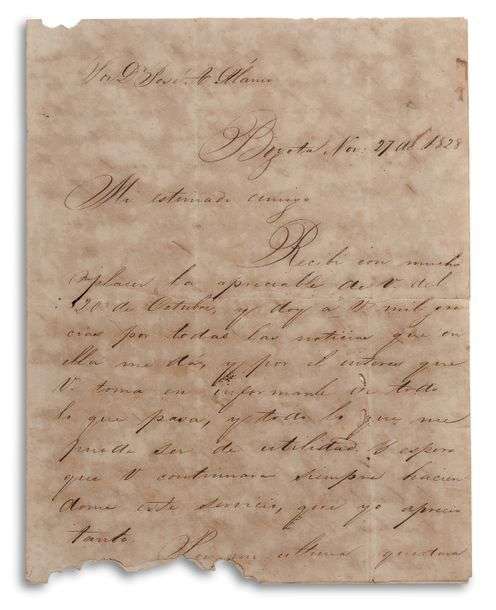 Sor Dn José A Alamo
Bogota Nov. 27 de 1828
Mi estimado amigo
Recibi con mucho
placer la apreciable de V. del
20 de Octubre, y doy a V mil gra
cias por todas las noticias que en
ella me dá, y por el interes que
V toma en informarle de todo
lo que pasa, y todo lo que me
pueda ser de utilidad. Y espero
que V continuara siempre hacien
dome este servicio, que yo aprecio
tanto.
ultima quedara